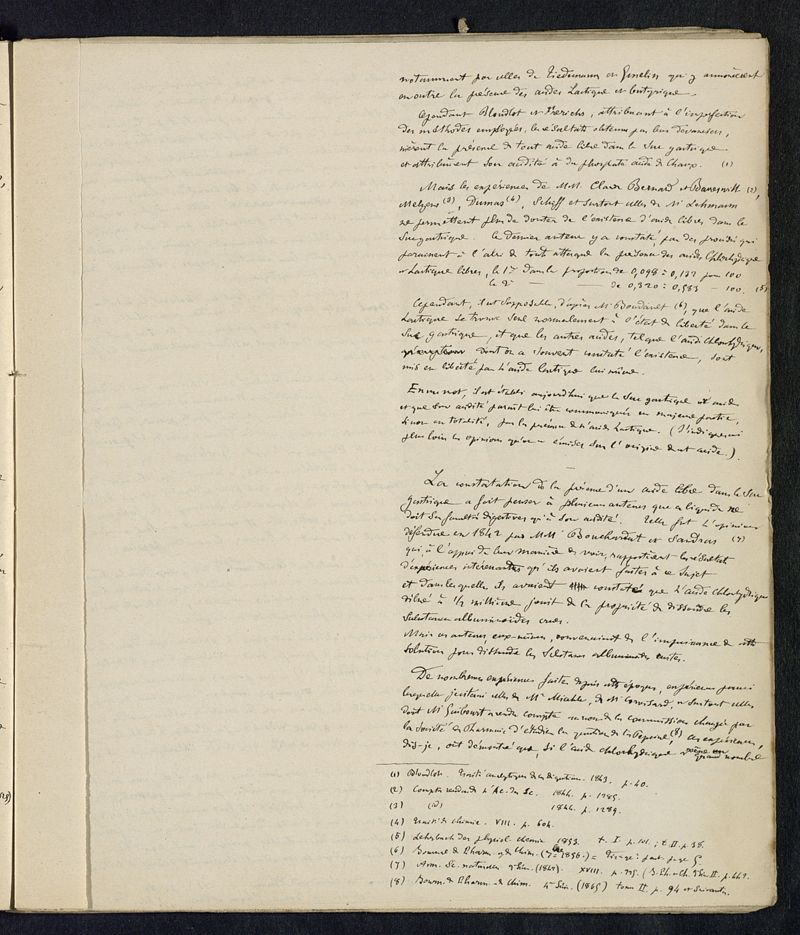 notamment par celles de Tiedemann et Gmelin qui y annoncèrent
en outre la présence des acides Lactique et butyrique.
Cependant Blondlot et Frerichs, attribuant à l'imperfection
des méthodes employées, les résultats obtenus par leurs devanciers,
nièrent la présence de tout acide libre dans le Suc gastrique
et attribuèrent son acidité à du phosphate acide de Chaux. (1)
Mais les expériences de MM Claude Bernard et Barreswill (2),
Melsens (3), Dumas (4), Schiff et surtout celles de Mr Lehmann
ne permettent plus de douter de l'existence d'acides libres dans le
Suc gastrique. Ce dernier auteur y a constaté, par des procédés qui
paraissent à l'abri de toute attaque la présence des acides Chlorhydrique
et Lactique libres, le 1er dans la proportion de 0,098 à 0,132 pour 100
le 2e — — de 0,320 à 0,583 — 100. (5)
Cependant, il est supposable, d'après Mr Boudault (6), que l'acide
Lactique se trouve seul normalement à l'état de liberté dans le
Suc gastrique, et que les autres acides, tel que l'acide Chlorhydrique,
dont on a souvent constaté l'existence, sont
mis en liberté par l'acide lactique lui même.
En un mot, il est établi aujourd'hui que le Suc gastrique est acide
et que son acidité paraît lui être communiquée en majeure partie,
si non en totalité, par la présence de l'acide Lactique. (J'indiquerai
plus loin les opinions qu'on a émises sur l'origine de cet acide.)
La constatation de la présence d'un acide libre dans le Suc
gastrique a fait penser à plusieurs auteurs que ce liquide ne
doit ses facultés digestives qu'à son acidité. Telle fut l'opinion
défendue en 1842 par MM Bouchardat et Sandras (7)
qui, à l'appui de leur manière de voir, rapportaient les résultats
d'expériences intéressantes qu'ils avaient faites à ce sujet
et dans lesquelles ils avaient constaté que l'acide Chlorhydrique
dilué à 1/2 millième jouit de la propriété de dissoudre les
substances albuminoïdes crues.
Mais ces auteurs, eux-mêmes, convenaient de l'impuissance de cette
solution pour dissoudre les substances albuminoïdes cuites.
De nombreuses expériences faites depuis cette époque, expériences parmi
lesquelles je citerai celles de Mr Mialhe, de Mr Corvisart, et surtout celles
dont Mr Guibourt a rendu compte au nom de la commission chargée par
la Société de Pharmacie d'étudier la question de la Pepsine, (8) ces expériences,
dis-je, ont démontré que, si l'acide chlorhydrique et même un grand nombre
(1) Blondlot. Traité analytique de la digestion. 1843. p. 40.
(2) Comptes rendus de l'Ac. des Sc. 1844. p. 1285.
(3) (id) 1844. p. 1289.
(4) Traité de chimie. VIII. p. 604.
(5) Lehrbuch der physiol. chemie 1853. t. I p. 101. ; t. II p. 38.
(6) Journal de Pharm. et de Chim. (1856.)
(7) Ann. Sc. naturelles 2e Série. (1842). XVIII.
(8) Journ. de Pharm. et de Chim. 4e Série. (1865) tome II. p. 94 et suivantes.